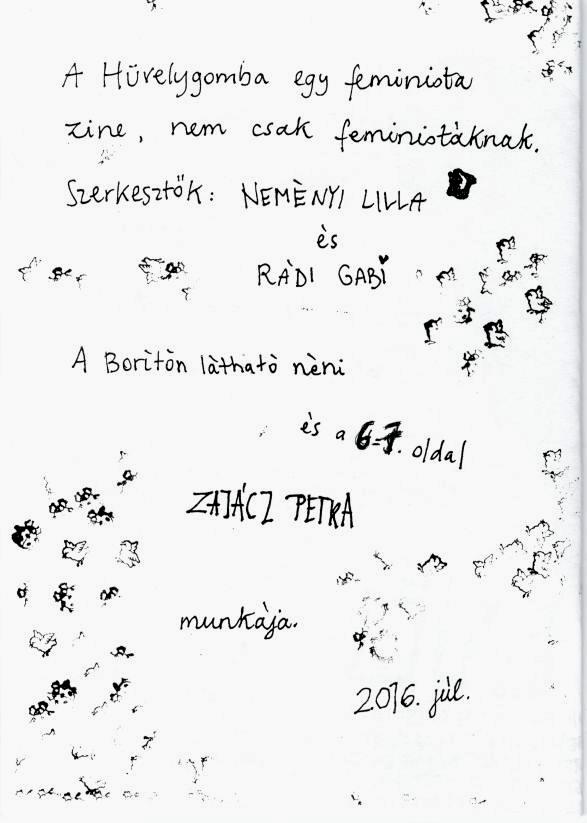 A Hüvelygomba egy feminista
zine, nem csak feministàknak.
Szerkesztők: NEMÈNYI LILLA
ès
RÀDI GABI
A Borìtòn làthatò nèni
ès a 6-7. oldal
ZAJÁCZ PETRA
munkàja.
2016. jùl.